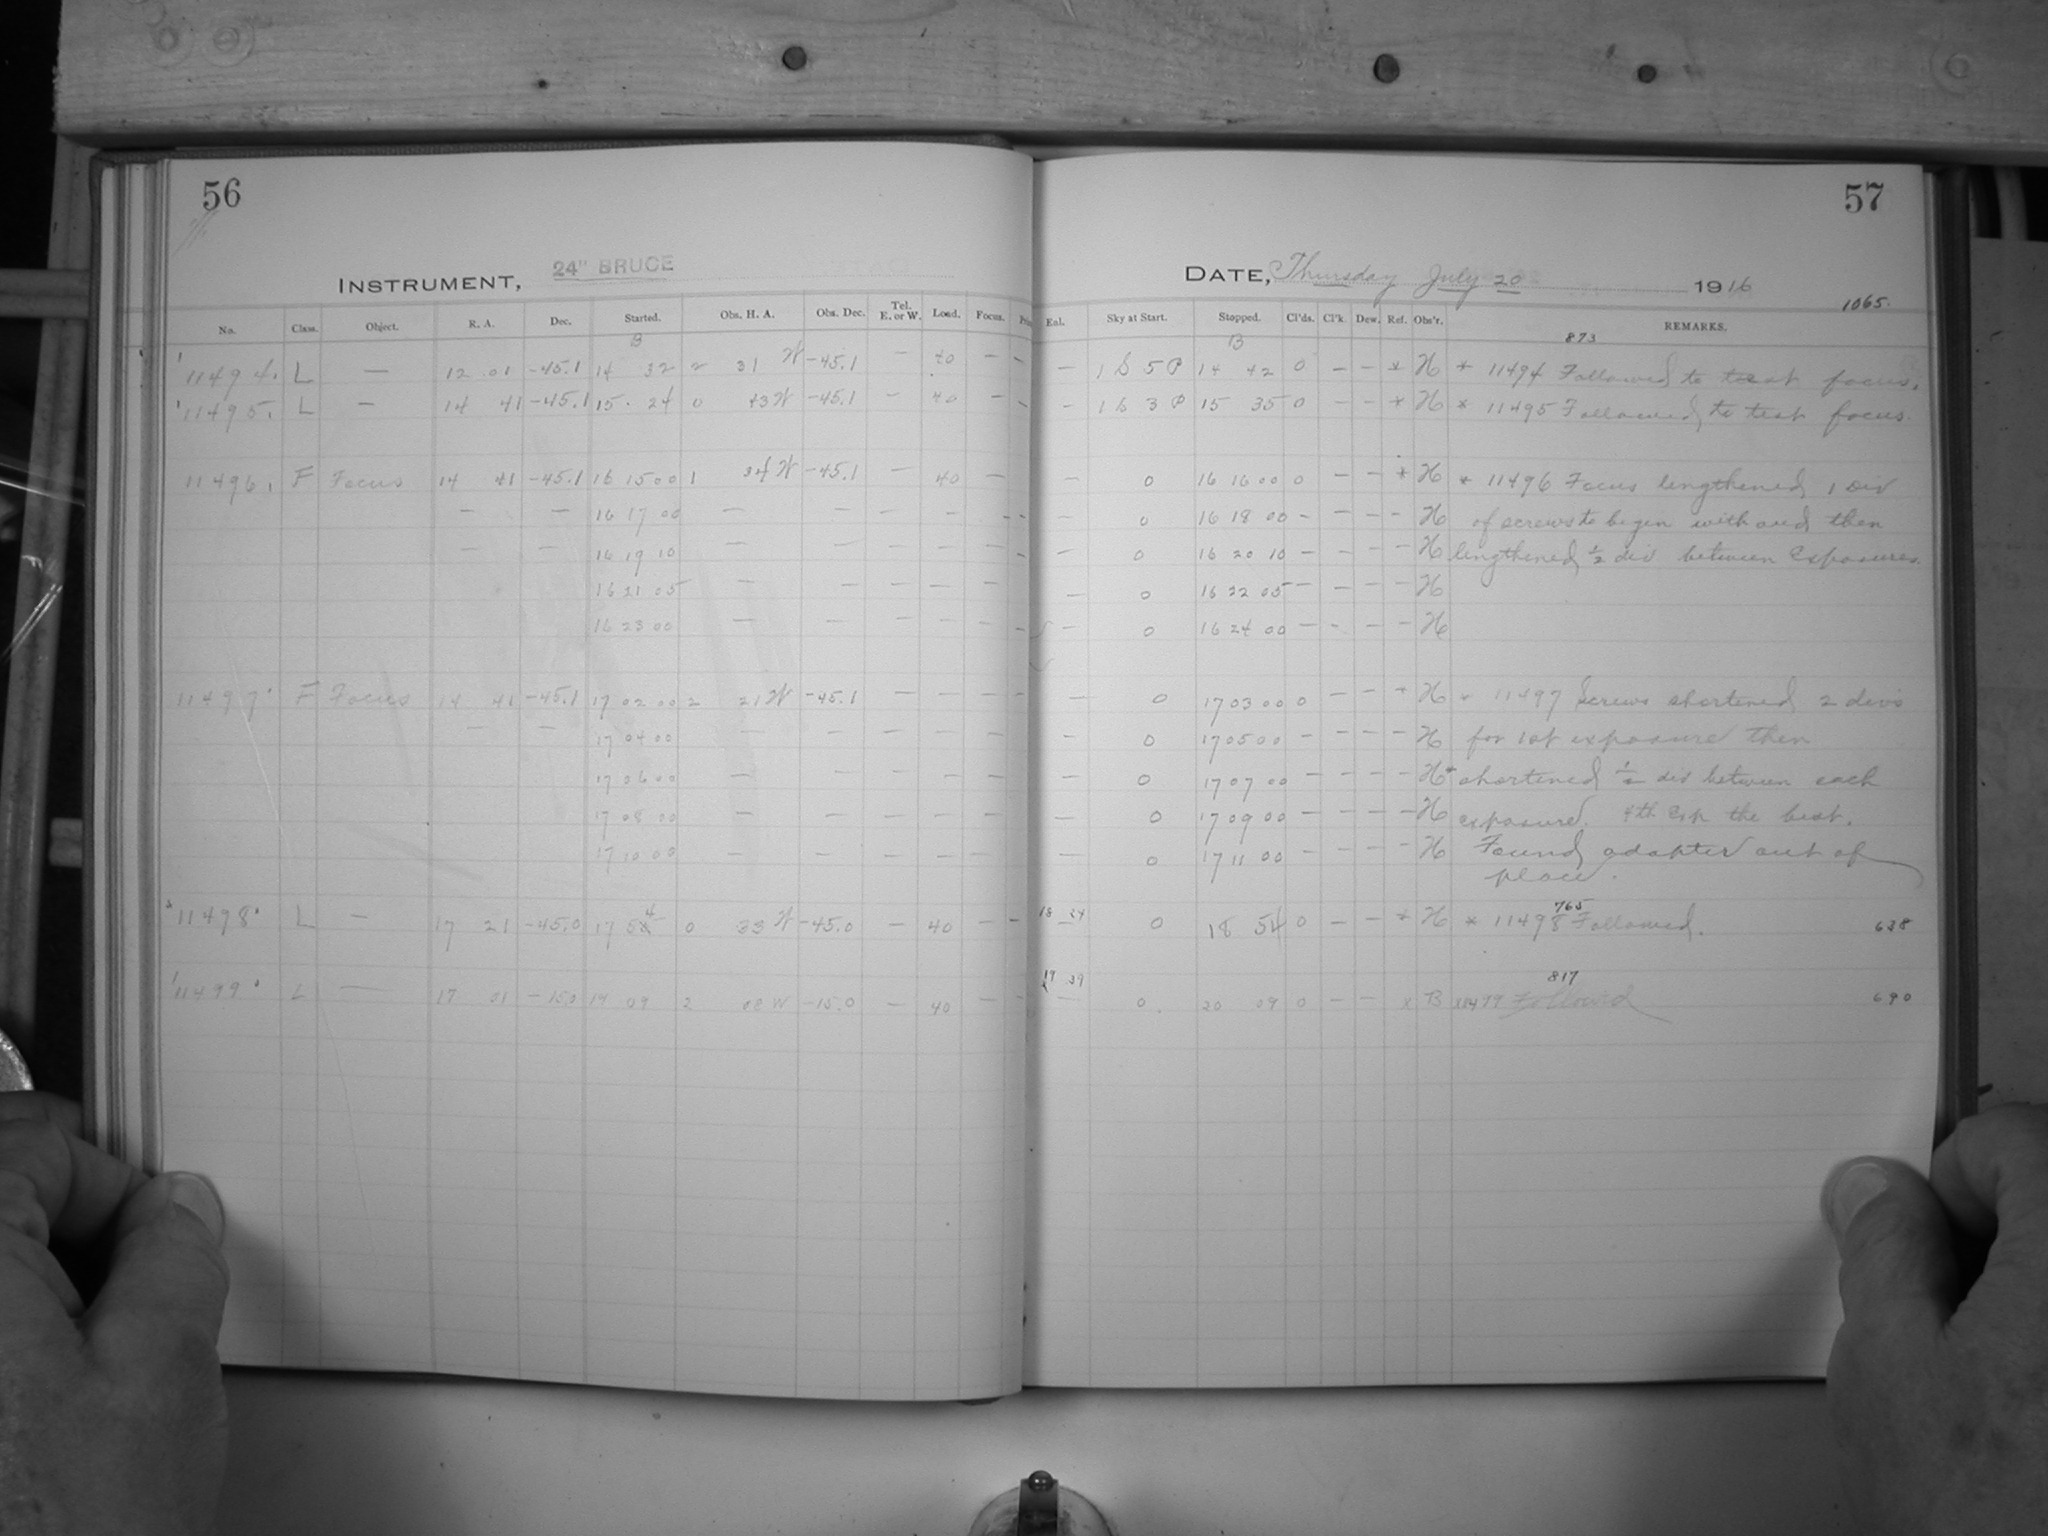 56
57
INSTRUMENT, 24" BRUCE
DATE, Thursday July 20 1916
1065.
No. Class. Object. R. A. Dec. Started. Obs. H. A. Obs. Dec. Tel. E. or W. Load. Focus. Enl. Sky at Start. Stopped. Cl'ds. Cl'k. Dew. Ref. Obs'r. REMARKS.
B B 873
11494. L — 12 01 -45.1 14 32 2 31 W -45.1 — 40 — — — 1 S 5 P 14 42 0 — — * H * 11494 Followed to test focus.
11495. L — 14 41 -45.1 15. 24 0 43 W -45.1 — 40 — — — 1 S 3 P 15 35 0 — — * H * 11495 Followed to test focus.
11496. F Focus 14 41 -45.1 16 15 00 1 34 W -45.1 — 40 — — 0 16 16 00 0 — — * H * 11496 Focus lengthened 1 Div
— — 16 17 00 — — — — — — — 0 16 18 00 — — — — H of screws to begin with and then
— — 16 19 10 — — — — — — — 0 16 20 10 — — — — H lengthened ½ div between Exposures.
16 21 05 — — — — — — — 0 16 22 05 — — — — H
16 23 00 — — — — — — — 0 16 24 00 — — — — H
11497. F Focus 14 41 -45.1 17 02 00 2 21 W -45.1 — — — — — 0 17 03 00 0 — — * H * 11497 Screws shortened 2 divs
— — 17 04 00 — — — — — — — 0 17 05 00 — — — — H for 1st exposure then
17 06 00 — — — — — — — 0 17 07 00 — — — — H shortened ½ div between each
17 08 00 — — — — — — — 0 17 09 00 — — — — H exposure. 4th Exp the best.
17 10 00 — — — — — — — 0 17 11 00 — — — — H Found adapter out of
place.
765
11498. L — 17 21 -45.0 17 54 0 33 W -45.0 — 40 — — 18 24 0 18 54 0 — — * H * 11498 Followed. 638
817
11499. L — 17 01 -15.0 19 09 2 08 W -15.0 — 40 — — 19 39 0. 20 09 0 — — x B x11499 Followed 690